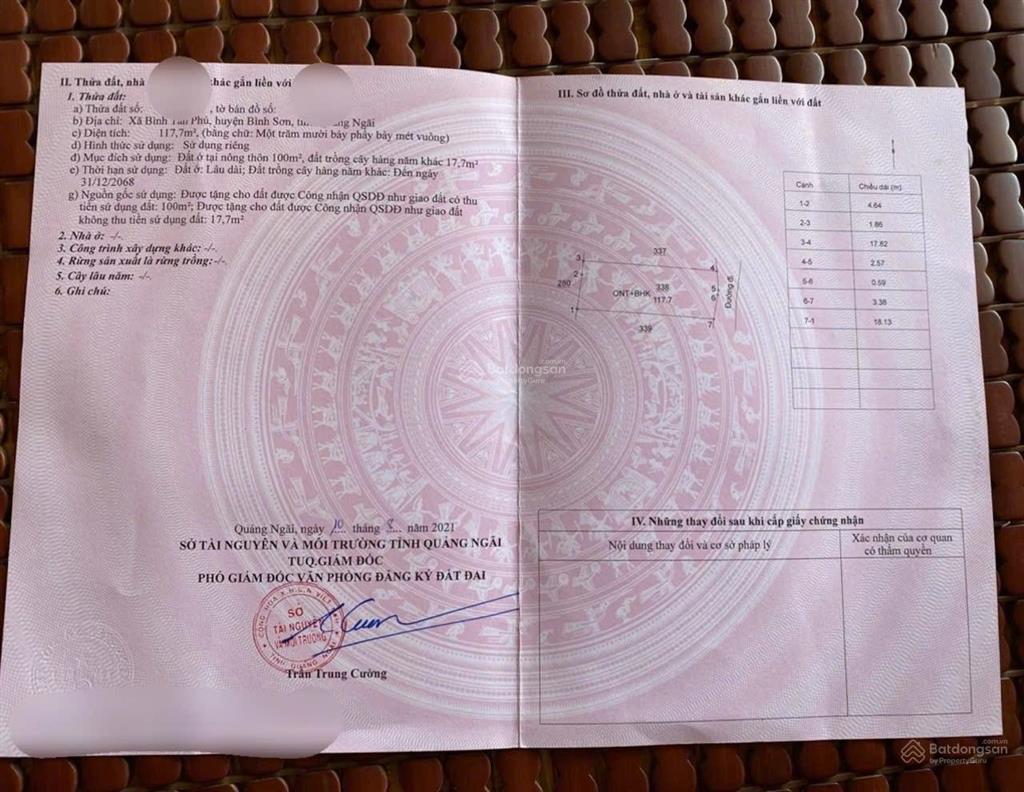 II. Thửa đất, nhà khác gắn liền với
1. Thửa đất:
a) Thửa đất số: , tờ bản đồ số:
b) Địa chỉ: Xã Bình Tân Phú, huyện Bình Sơn, Ngãi
c) Diện tích: 117,7m², (bằng chữ: Một trăm mười bảy phẩy bảy mét vuông)
d) Hình thức sử dụng: Sử dụng riêng
đ) Mục đích sử dụng: Đất ở tại nông thôn 100m², đất trồng cây hàng năm khác 17,7m²
e) Thời hạn sử dụng: Đất ở: Lâu dài; Đất trồng cây hàng năm khác: Đến ngày
31/12/2068
g) Nguồn gốc sử dụng: Được tặng cho đất được Công nhận QSDĐ như giao đất có thu
tiền sử dụng đất: 100m²; Được tặng cho đất được Công nhận QSDĐ như giao đất
không thu tiền sử dụng đất: 17,7m²
2. Nhà ở: -/-.
3. Công trình xây dựng khác: -/-.
4. Rừng sản xuất là rừng trồng: -/-.
5. Cây lâu năm: -/-.
6. Ghi chú:
Quảng Ngãi, ngày 10 tháng 8 năm 2021
SỞ TÀI NGUYÊN VÀ MÔI TRƯỜNG TỈNH QUẢNG NGÃI
TUQ.GIÁM ĐỐC
PHÓ GIÁM ĐỐC VĂN PHÒNG ĐĂNG KÝ ĐẤT ĐAI
SỞ
TÀI NGUYÊN
VÀ MÔI TRƯỜNG
TỈNH QUẢNG NGÃI
Trần Trung Cường
III. Sơ đồ thửa đất, nhà ở và tài sản khác gắn liền với đất
337
3
4
2
280
ONT+BHK
338
117.7
5
6
Đường đi
1
339
7
Cạnh Chiều dài (m)
1-2 4.64
2-3 1.86
3-4 17.82
4-5 2.57
5-6 0.59
6-7 3.38
7-1 18.13
IV. Những thay đổi sau khi cấp giấy chứng nhận
Nội dung thay đổi và cơ sở pháp lý
Xác nhận của cơ quan
có thẩm quyền
Batdongsan.com.vn
by PropertyGuru
Batdongsan.com.vn
by PropertyGuru